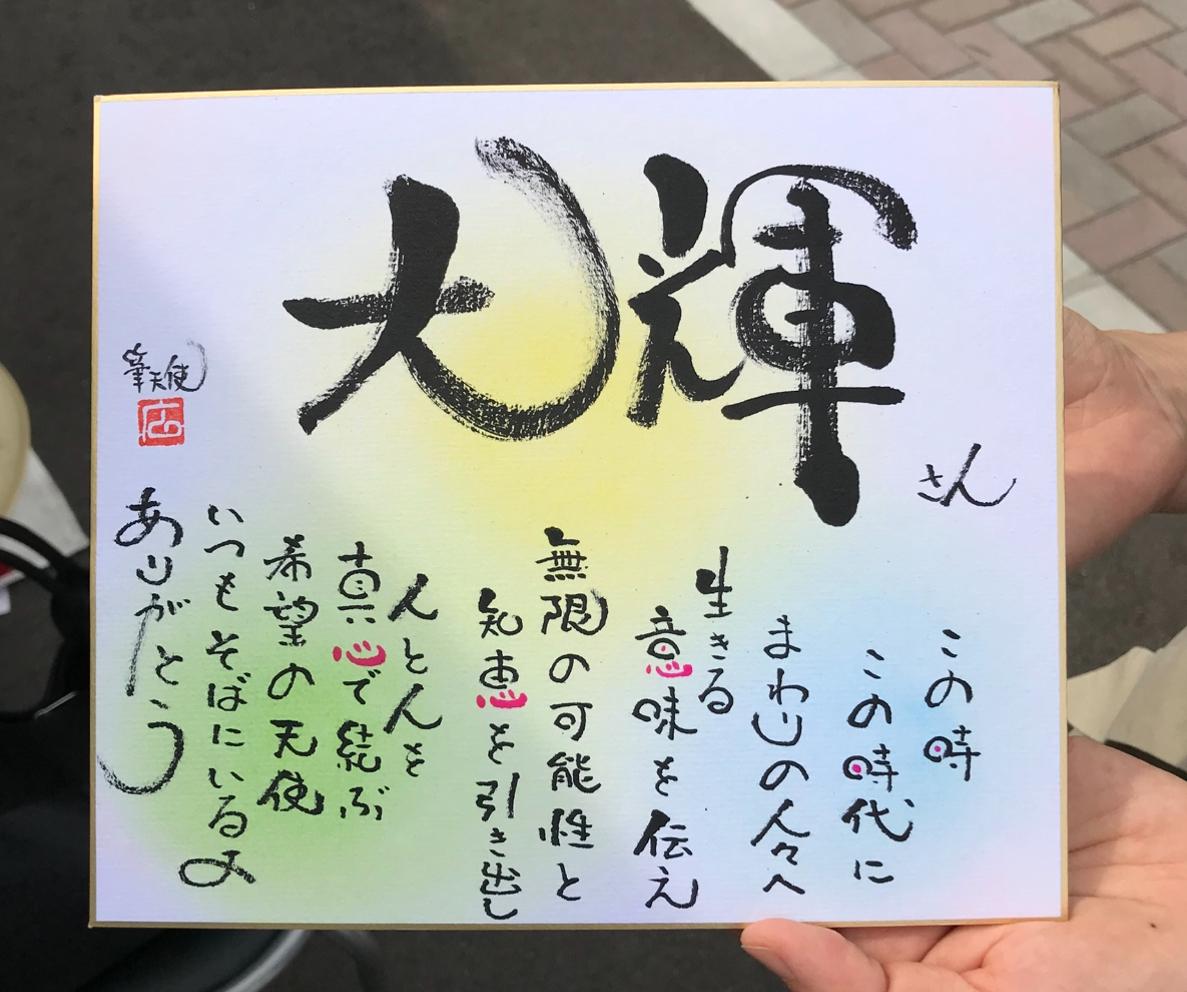 大輝
さん
この時
この時代に
まわりの人々へ
生きる
意味を伝え
無限の可能性と
知恵を引き出し
人と人を
真心で結ぶ
希望の天使
いつもそばにいるよ
ありがとう
筆天使